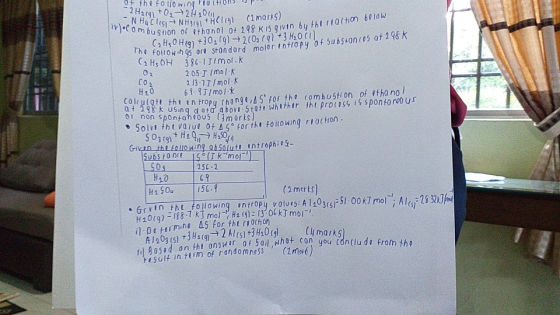 of the following reactions is
- 2H2(g) + O2 → 2H2O(l)
- NH4Cl(s) → NH3(g) + HCl(g) (2marks)
iv) • Combustion of ethanol at 298 K is given by the reaction below
C2H5OH(g) + 3O2(g) → 2CO2(g) + 3H2O(l)
The followings are standard molar entropy of substances at 298K
C2H5OH 386.1 J/mol.K
O2 205 J/mol.K
CO2 213.7 J/mol.K
H2O 69.9 J/mol.K
Calculate the entropy change, ΔS° for the combustion of ethanol
at 298 K using data above. State whether the process is spontaneous
or non spontaneous (7marks)
• Solve the value of ΔS° for the following reaction.
SO3(g) + H2O → H2SO4
Given the following absolute enthrophies-
Substance S°(JK⁻¹mol⁻¹)
SO3 256.2
H2O 69
H2SO4 156.9
(2marks)
• Given the following entropy values: Al2O3(s) = 51.00 KJ mol⁻¹, Al(s) = 28.32KJ/mol
H2O(g) = 188.7 KJ mol⁻¹, H2(g) = 130.6 KJ mol⁻¹.
i) Determine ΔS for the reaction
Al2O3(s) + 3H2(g) → 2Al(s) + 3H2O(g) (4marks)
ii) Based on the answer at 5ai), what can you conclude from the
result in term of randomness (2mark)